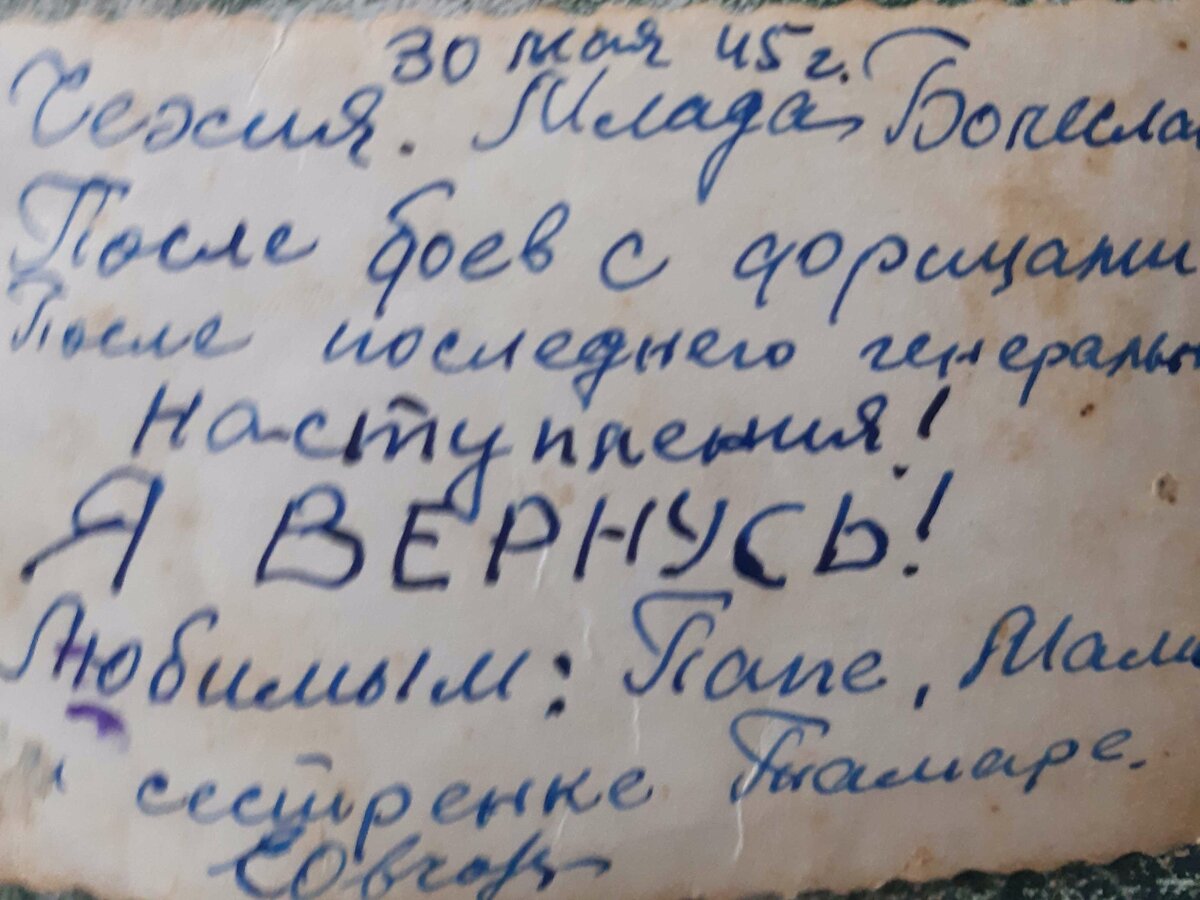 30 мая 45 г.
Чехия. Млада Болесла
После боев с фрицами
После последнего генеральн
Наступления!
Я ВЕРНУСЬ!
Любимым: Папе, Маме
и сестренке Тамаре.